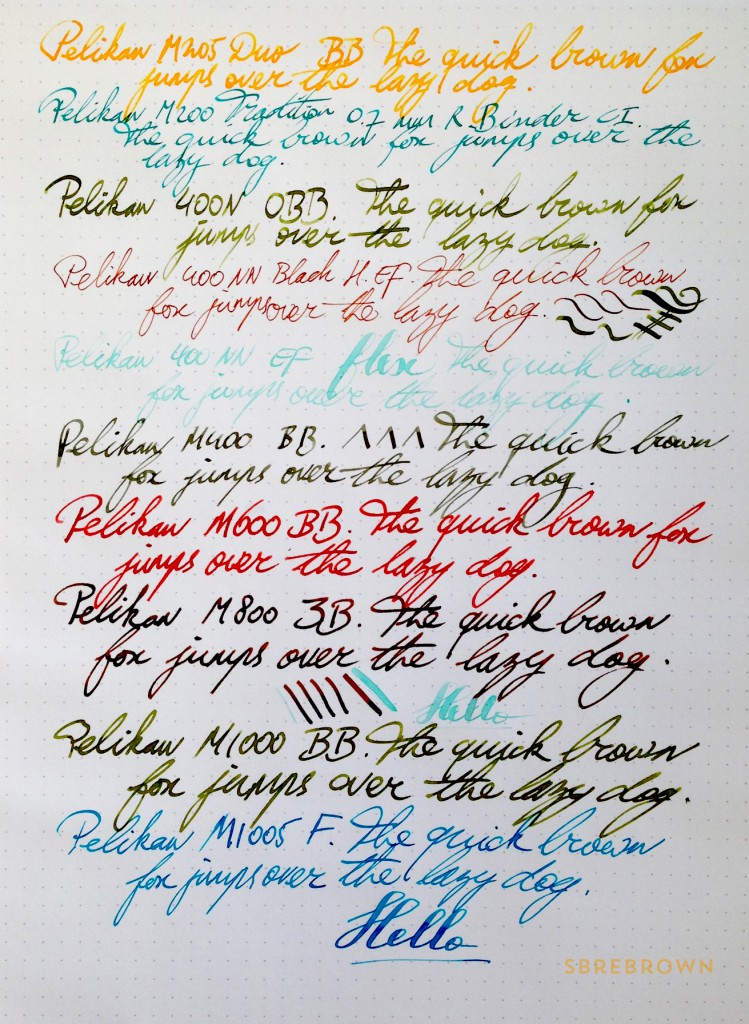 Pelikan M205 Duo BB The quick brown fox
jumps over the lazy dog.
Pelikan M200 Tradition 0.7 mm R. Binder CI.
The quick brown fox jumps over the
lazy dog.
Pelikan 400N OBB. The quick brown fox
jumps over the lazy dog.
Pelikan 400NN Black H. EF. The quick brown
fox jumps over the lazy dog.
Pelikan 400 NN EF flex The quick brown
fox jumps over the lazy dog.
Pelikan M400 BB. The quick brown
fox jumps over the lazy dog.
Pelikan M600 BB. The quick brown fox
jumps over the lazy dog.
Pelikan M800 3B. The quick brown
fox jumps over the lazy dog.
Hello
Pelikan M1000 BB. The quick brown
fox jumps over the lazy dog.
Pelikan M1005 F. The quick brown
fox jumps over the lazy dog.
Hello
SBREBROWN